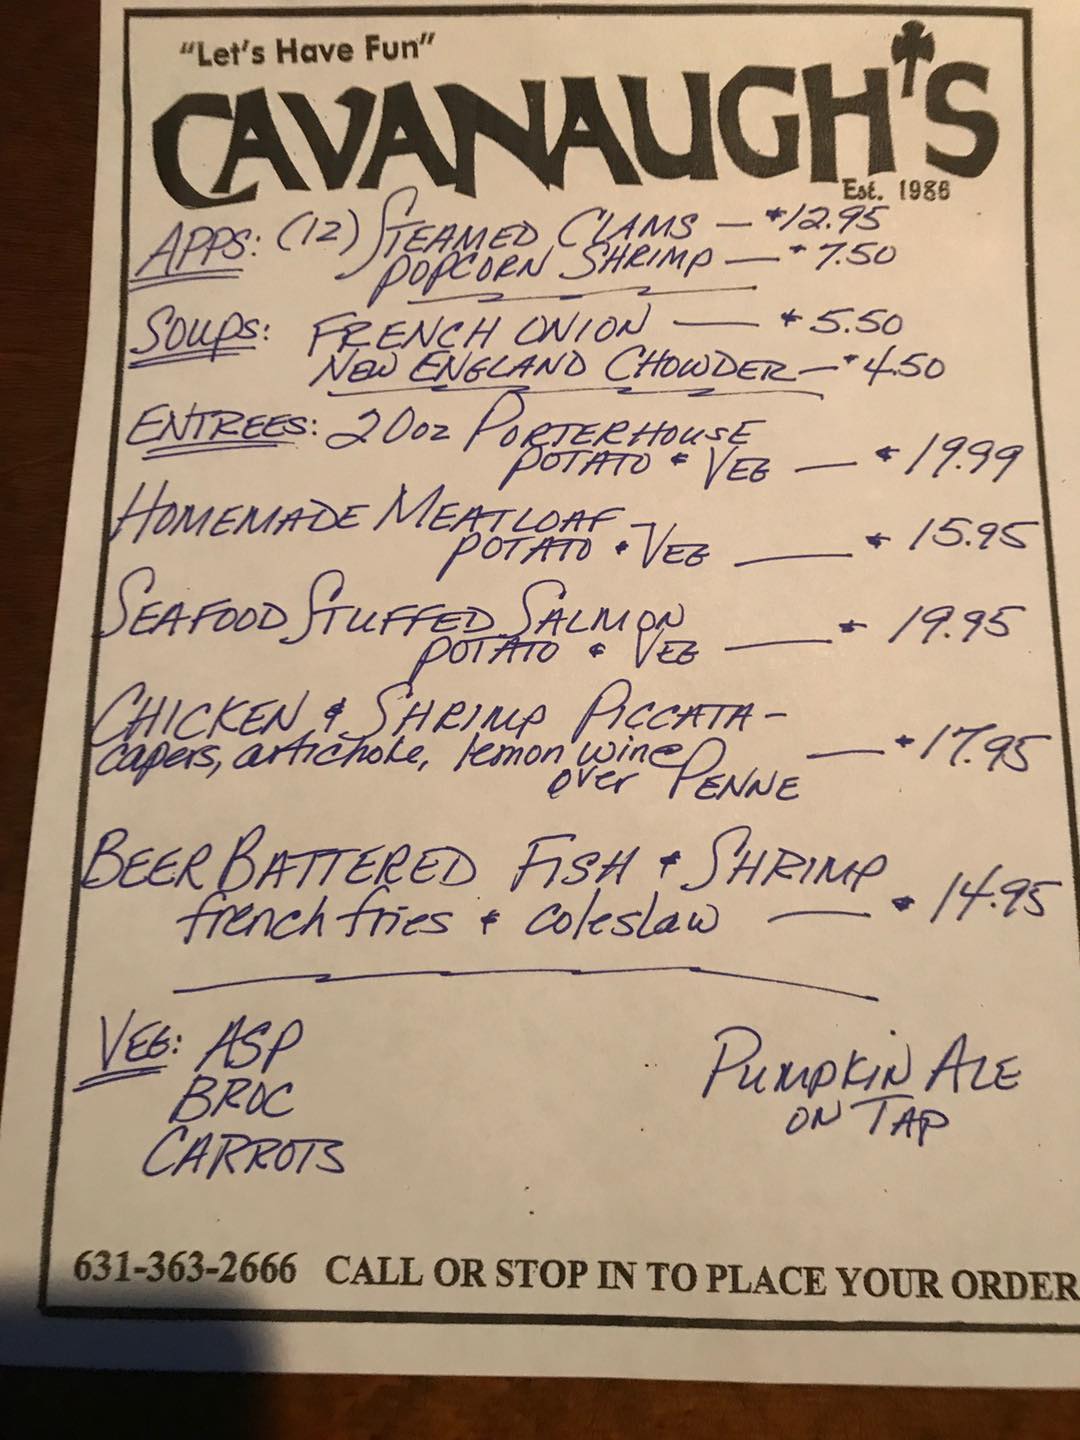 "Let's Have Fun"
CAVANAUGH'S
Est. 1986
APPS: (12) STEAMED CLAMS — $12.95
POPCORN SHRIMP — $7.50
SOUPS: FRENCH ONION — $5.50
NEW ENGLAND CHOWDER — $4.50
ENTREES: 20oz PORTERHOUSE
POTATO & VEG — $19.99
HOMEMADE MEATLOAF -
POTATO & VEG — $15.95
SEAFOOD STUFFED SALMON
POTATO & VEG — $19.95
CHICKEN & SHRIMP PICCATA -
capers, artichoke, lemon wine — $17.95
over PENNE
BEER BATTERED FISH & SHRIMP
french fries & coleslaw — $14.95
VEG: ASP
BROC
CARROTS
PUMPKIN ALE
ON TAP
631-363-2666 CALL OR STOP IN TO PLACE YOUR ORDER